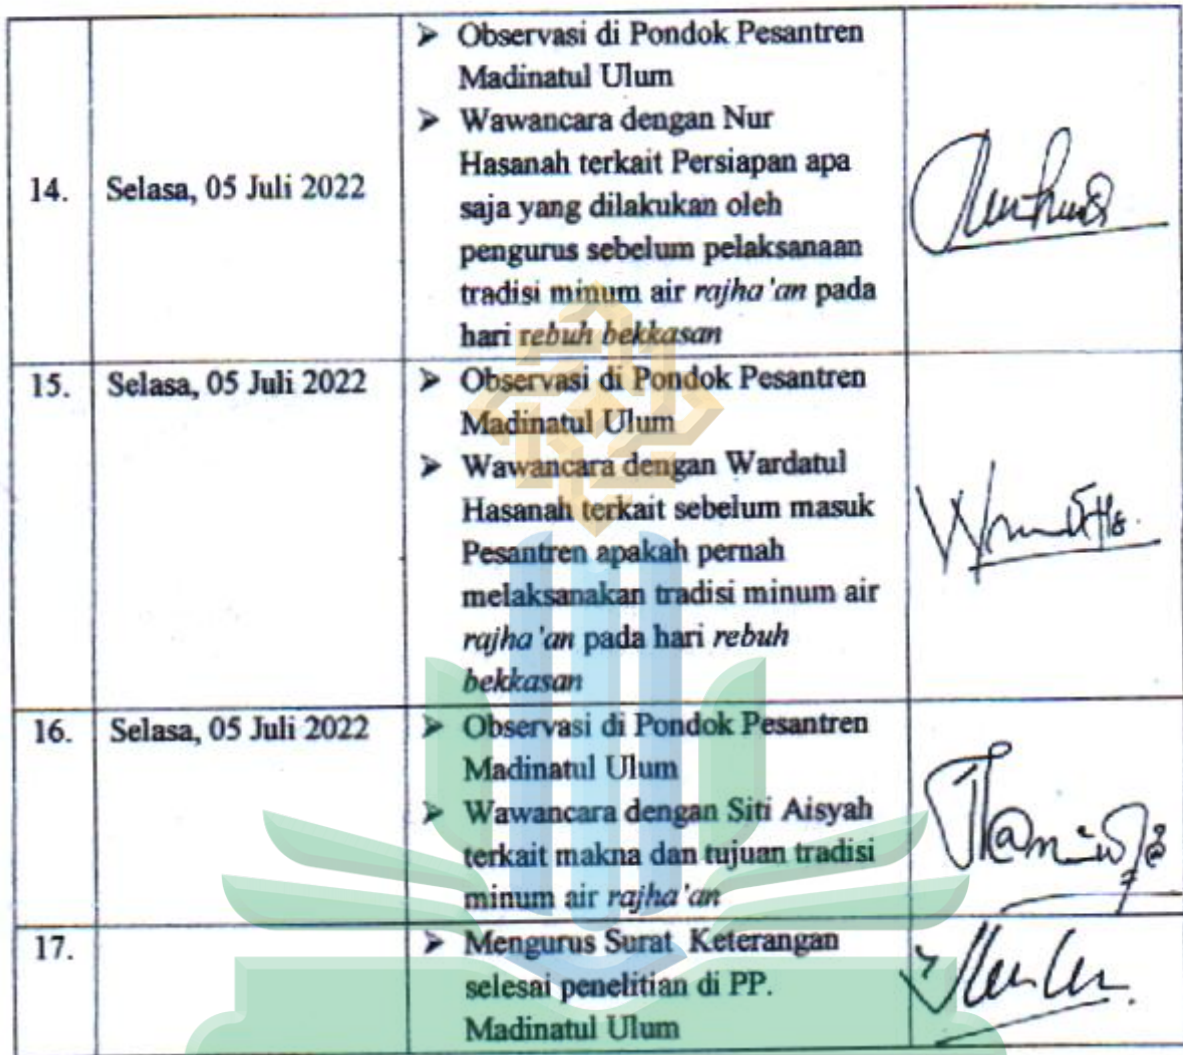 14.
Selasa, 05 Juli 2022
➢ Observasi di Pondok Pesantren
Madinatul Ulum
➢ Wawancara dengan Nur
Hasanah terkait Persiapan apa
saja yang dilakukan oleh
pengurus sebelum pelaksanaan
tradisi minum air rajha'an pada
hari rebuh bekkasan
15.
Selasa, 05 Juli 2022
➢ Observasi di Pondok Pesantren
Madinatul Ulum
➢ Wawancara dengan Wardatul
Hasanah terkait sebelum masuk
Pesantren apakah pernah
melaksanakan tradisi minum air
rajha'an pada hari rebuh
bekkasan
16.
Selasa, 05 Juli 2022
➢ Observasi di Pondok Pesantren
Madinatul Ulum
➢ Wawancara dengan Siti Aisyah
terkait makna dan tujuan tradisi
minum air rajha'an
17.
➢ Mengurus Surat Keterangan
selesai penelitian di PP.
Madinatul Ulum